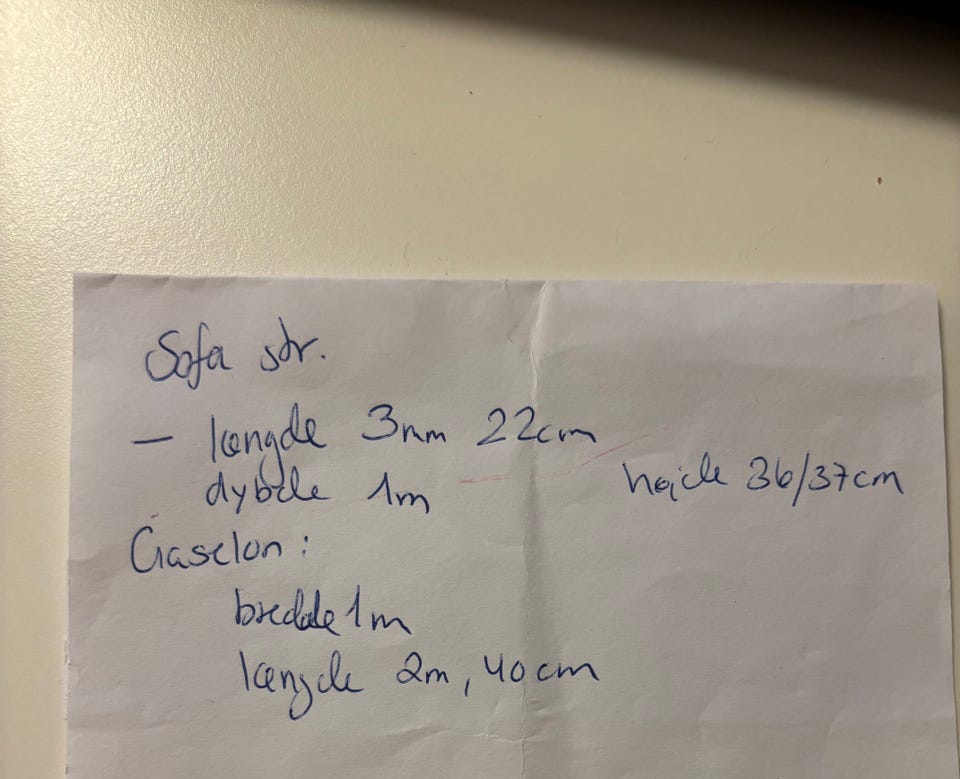 Sofa str.
- længde 3mm 22cm
dybde 1m
højde 36/37cm
Giaselon :
bredde 1m
længde 2m, 40cm